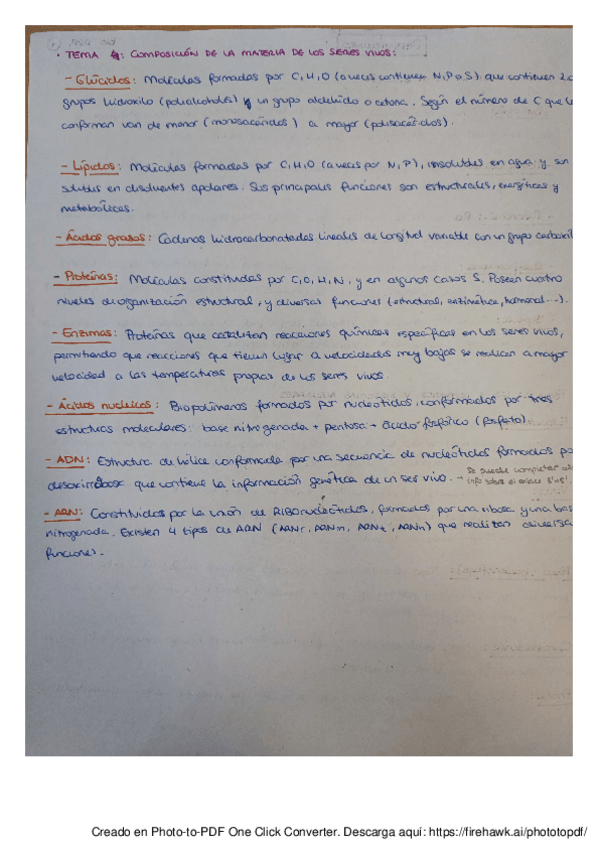 · TEMA 4: COMPOSICIÓN DE LA MATERIA DE LOS SERES VIVOS:
- Glúcidos: Moléculas formadas por C, H, O (a veces contienen N, P o S) que contienen 2 o
grupos hidroxilo (polialcoholes) y un grupo aldehído o cetona. Según el número de C que
conforman van de menor (monosacáridos) a mayor (polisacáridos).
- Lípidos: Moléculas formadas por C, H, O (a veces por N, P), insolubles en agua y son
solubles en disolventes apolares. Sus principales funciones son estructurales, energéticas y
metabólicas.
- Ácidos grasos: Cadenas hidrocarbonatadas lineales de longitud variable con un grupo carboxil
- Proteínas: Moléculas constituidas por C, O, H, N, y en algunos casos S. Poseen cuatro
niveles de organización estructural, y diversas funciones (estructural, enzimática, hormonal...).
- Enzimas: Proteínas que catalizan reacciones químicas específicas en los seres vivos,
permitiendo que reacciones que tienen lugar a velocidades muy bajas se realicen a mayor
velocidad a las temperaturas propias de los seres vivos.
- Ácidos nucleicos: Biopolímeros formados por nucleótidos, conformados por tres
estructuras moleculares: base nitrogenada + pentosa + ácido fosfórico (fosfato).
- ADN: Estructura de hélice conformada por una secuencia de nucleótidos formados po
desoxirribosa que contiene la información genética de un ser vivo. → Se puede completar
info sobre el enlace
- ARN: Constituidos por la unión de RIBOnucleótidos, formados por una ribosa y una bas
nitrogenada. Existen 4 tipos de ARN (ARNr, ARNm, ARNt, ARNh) que realizan diversas
funciones.
Creado en Photo-to-PDF One Click Converter. Descarga aquí: https://firehawk.ai/phototopdf/